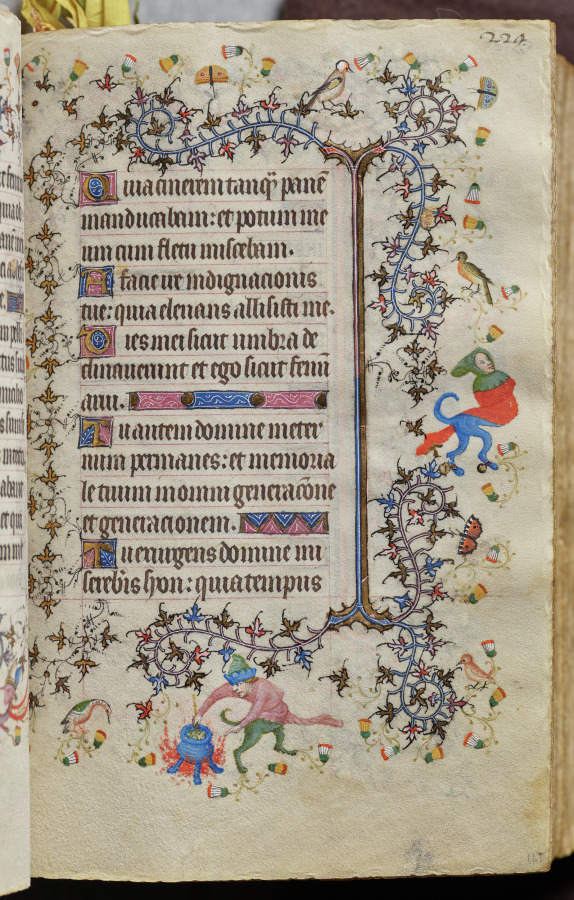 224.
Quia cinerem tanq̄ panē
manducabam: et potum me
um cum fletu miscebam.
A facie ire indignacionis
tue: quia elevans allisisti me.
Dies mei sicut umbra de
clinaverunt et ego sicut fenū
arui.
Tu autem domine in eter
num permanes: et memoria
le tuum in omni generacōne
et generacionem.
Tu exurgens domine mi
sereb̄is syon: quia tempus